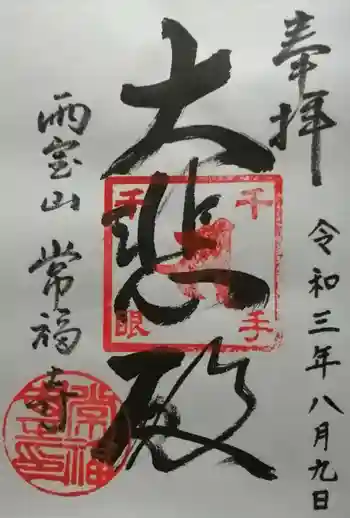 奉拝
令和三年八月九日
大悲殿
千手
千眼
雨宝山 常福寺